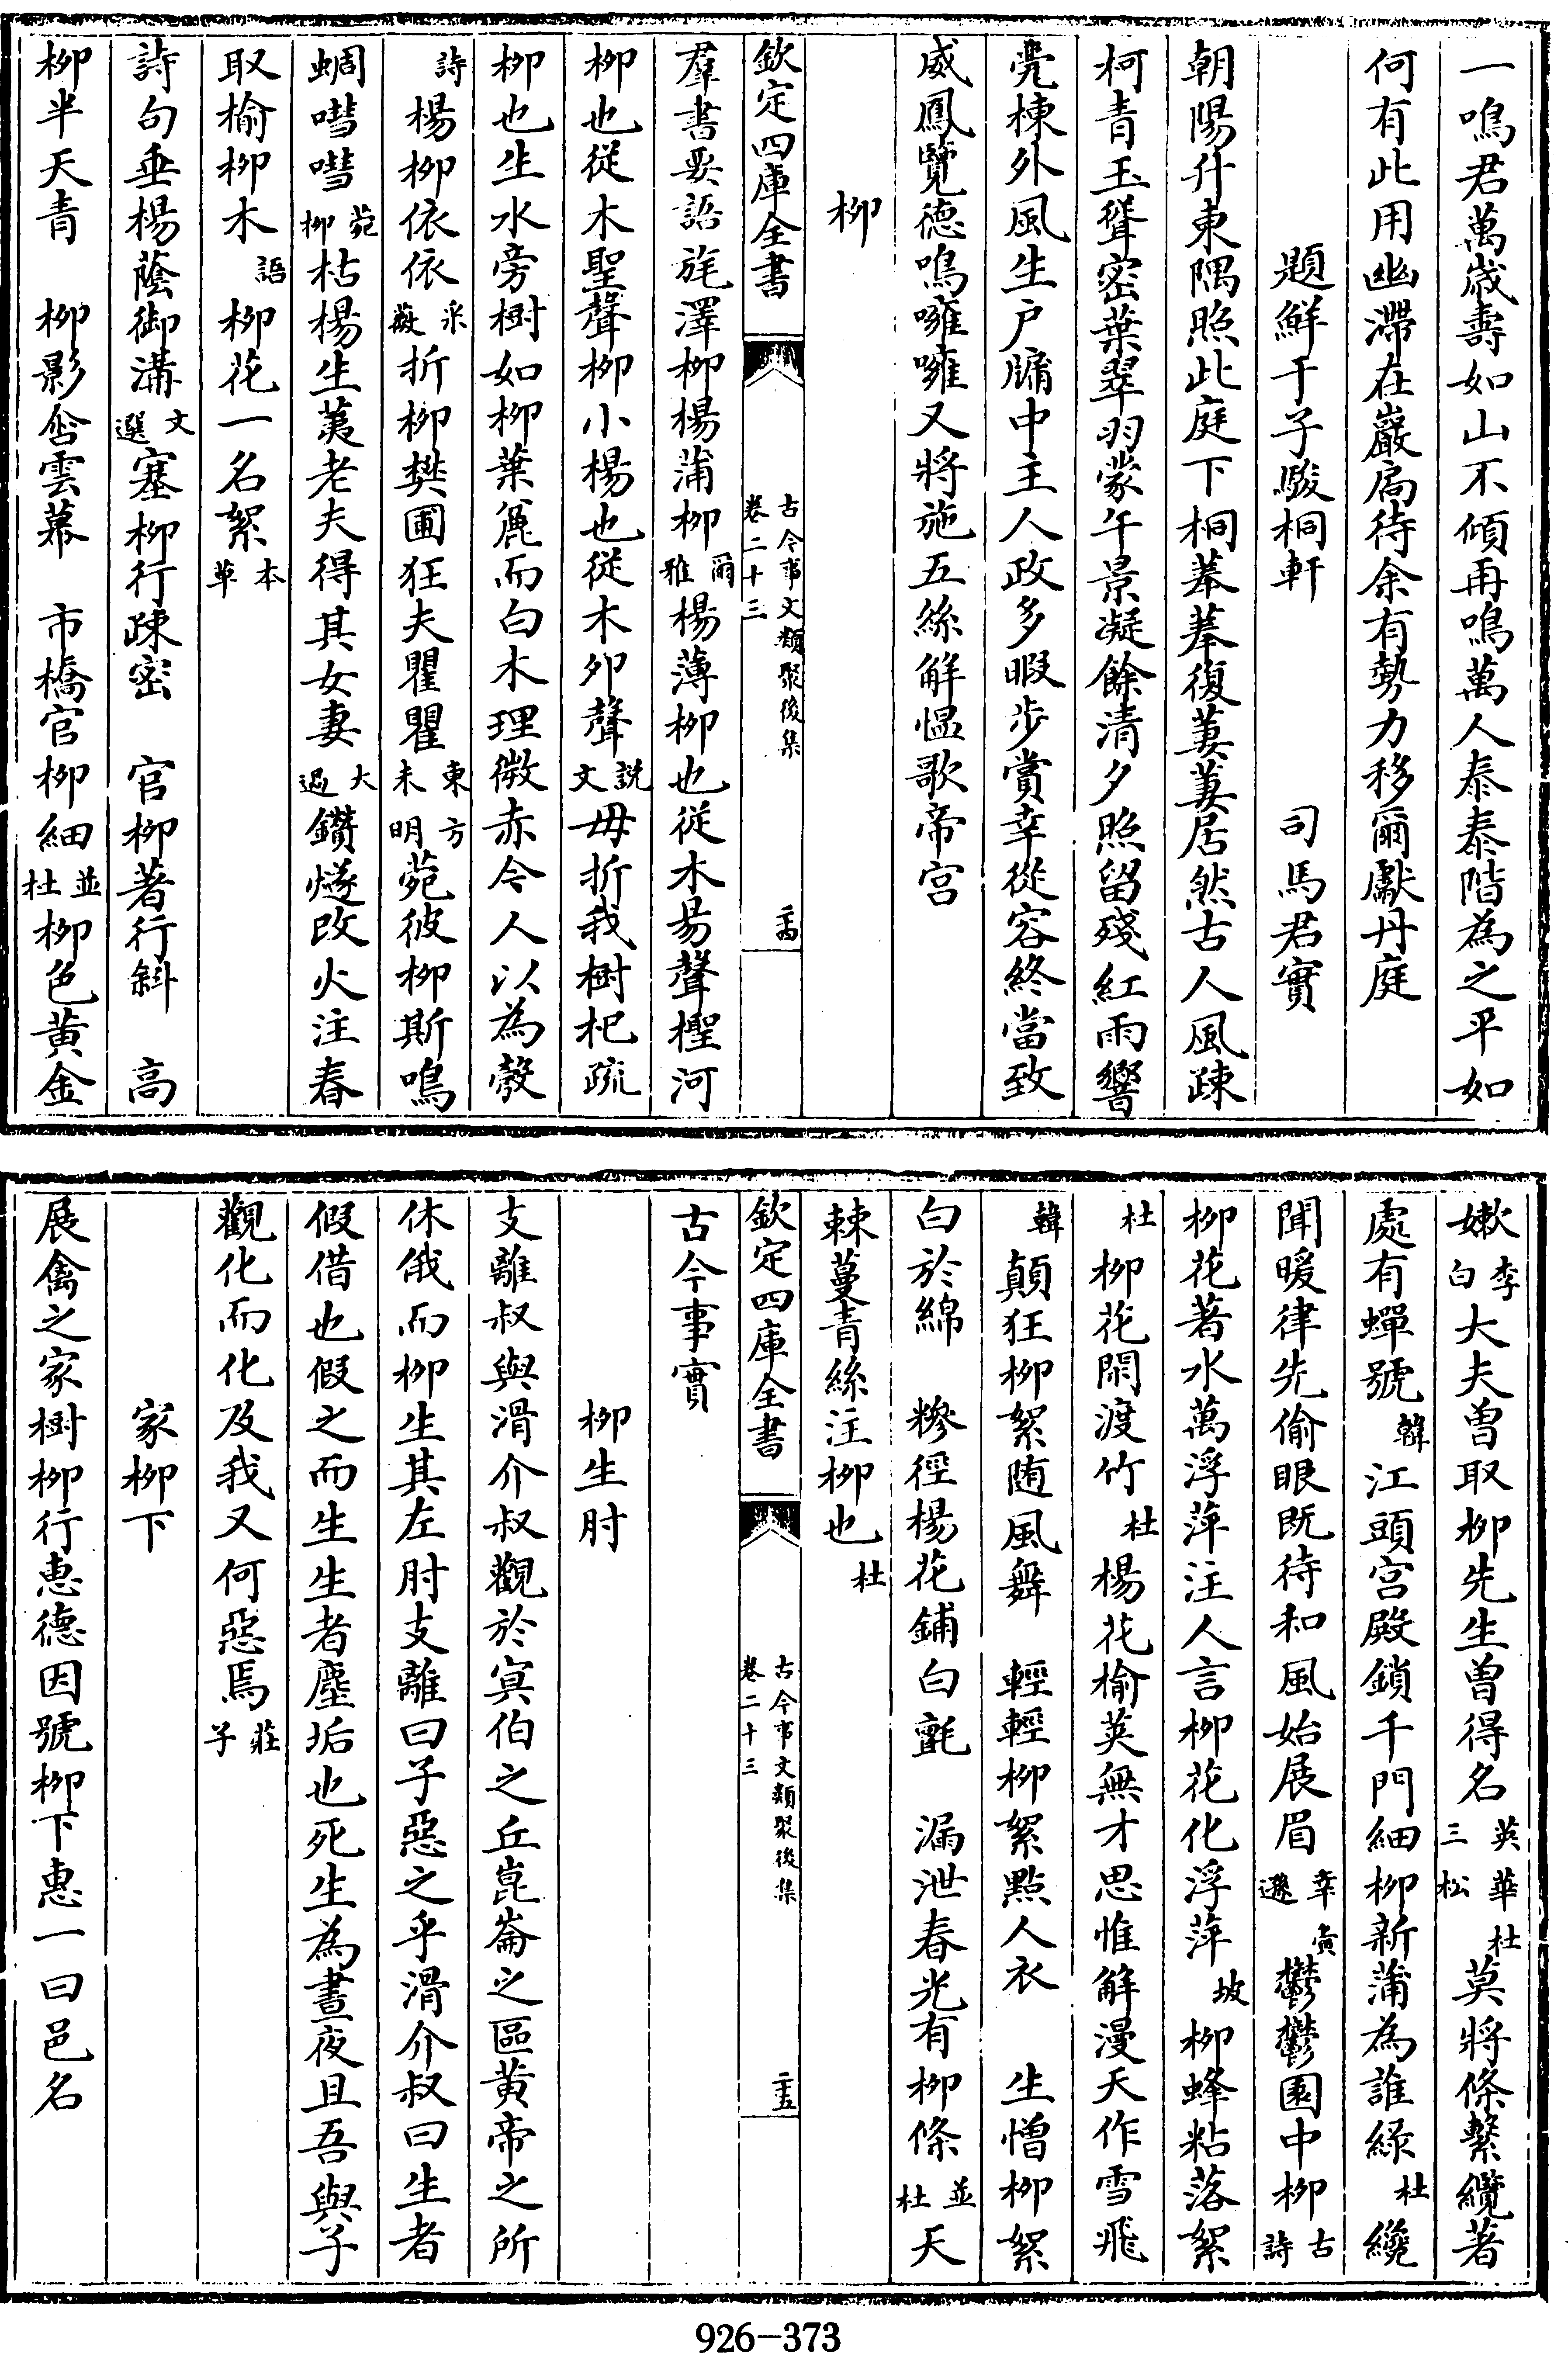 一鳴君萬歲壽如山不傾再鳴萬人泰泰階為之平如
何有此用幽滯在巖扃待余有勢力移爾獻丹庭
題鮮于子駿桐軒 司馬君實
朝陽升東隅照此庭下桐菶菶復萋萋居然古人風疎
柯青玉聳密葉翠羽蒙午景凝餘清夕照留殘紅雨響
甍棟外風生户牖中主人政多暇步賞幸從容終當致
威鳳覽德鳴嗈嗈又將施五絲解愠歌帝宫
柳
欽定四庫全書 古今事文類聚後集 卷二十三 二十四
羣書要語旄澤柳楊蒲柳爾雅楊薄柳也從木昜聲檉河
柳也從木聖聲柳小楊也從木夘聲説文毋折我樹杞疏
柳也生水旁樹如柳葉麄而白木理微赤今人以為轂
詩楊柳依依采薇折柳樊圃狂夫瞿瞿東方未明菀彼柳斯鳴
蜩嘒嘒菀柳枯楊生荑老夫得其女妻大過鑽燧改火注春
取榆柳木語柳花一名絮本草
詩句垂楊蔭御溝文選塞柳行疎密 官柳著行斜 高
柳半天青 柳影含雲幕 市橋官柳細並杜柳色黄金
嫰李白大夫曾取柳先生曽得名英華三松杜莫將條繫纜著
處有蟬號韓江頭宫殿鎖千門細柳新蒲為誰綠杜纔
聞暖律先偷眼既待和風始展眉幸夤遜鬱鬱園中柳古詩
柳花著水萬浮萍注人言柳花化浮萍坡柳蜂粘落絮
杜柳花閑渡竹杜楊花榆莢無才思惟解漫天作雪飛
韓顛狂柳絮随風舞 輕輕柳絮點人衣 生憎柳絮
白於綿 糝徑楊花鋪白氊 漏泄春光有柳條並杜天
棘蔓青絲注柳也杜
欽定四庫全書 古今事文類聚後集 卷二十三 二十五
古今事實
柳生肘
支離叔與滑介叔觀於㝠伯之丘崑崙之區黄帝之所
休俄而柳生其左肘支離曰子惡之乎滑介叔曰生者
假借也假之而生生者塵垢也死生為晝夜且吾與子
觀化而化及我又何惡焉莊子
家柳下
展禽之家樹柳行惠德因號柳下惠一曰邑名
926-373